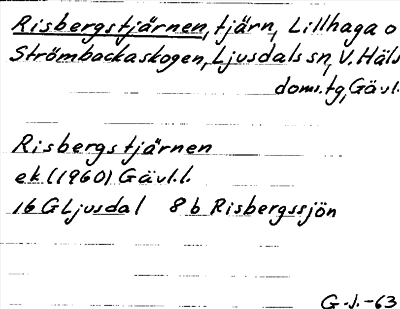 Risbergstjärnen, tjärn, Lillhaga o
Strömbackaskogen, Ljusdals sn, V. Häls
doms.tg, Gävl.
Risbergstjärnen
ek (1960) Gävl.l.
16 G Ljusdal 8 b Risbergssjön
G.J.-63